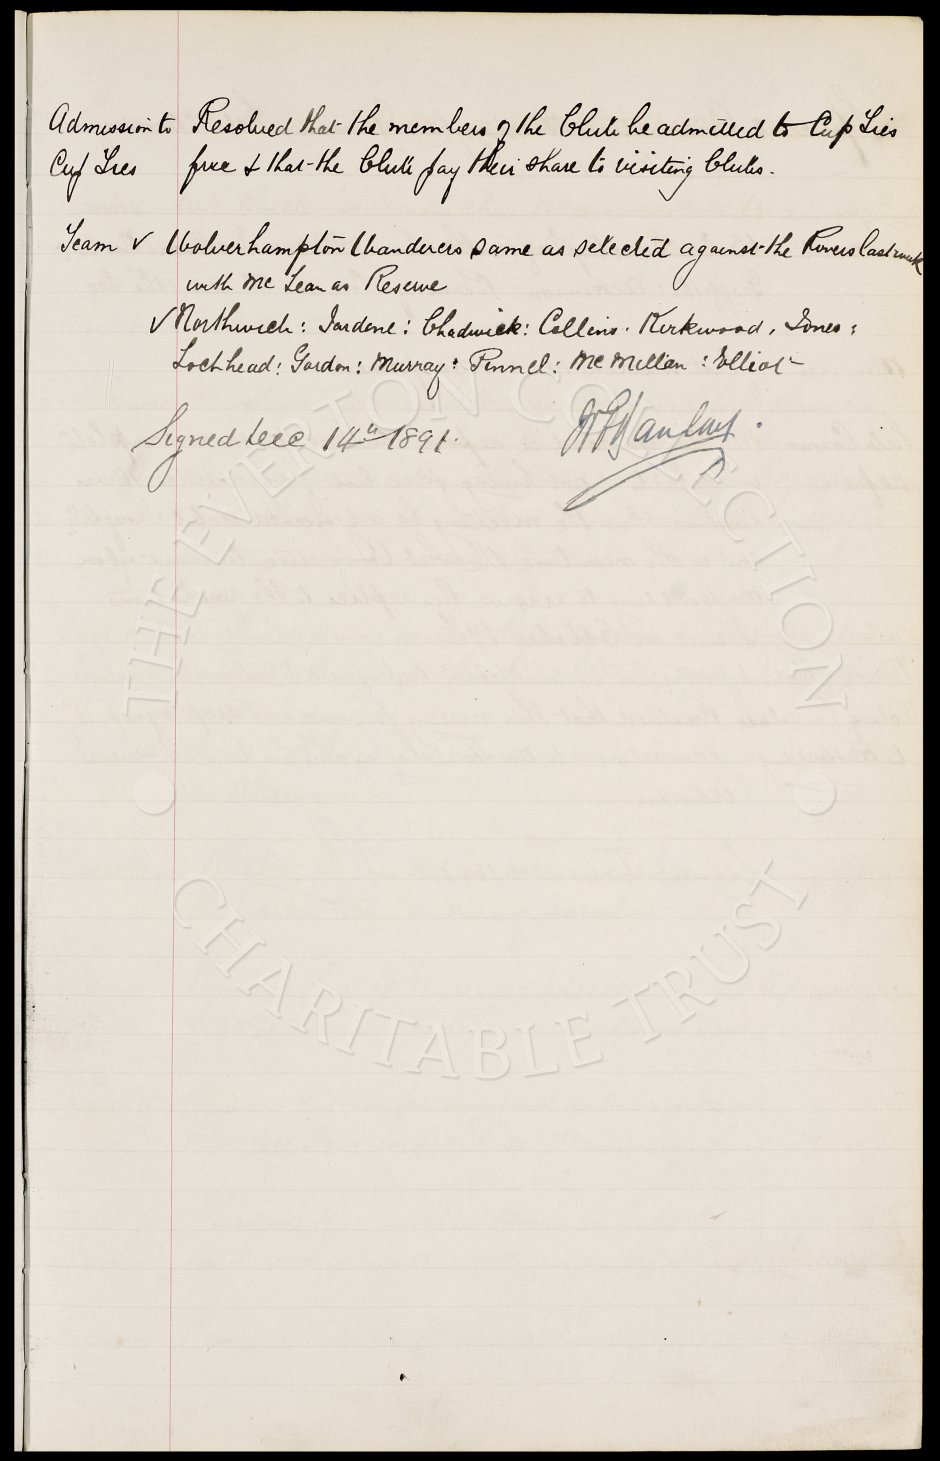 Admission to Resolved that the members of the Club be admitted to Cup Ties
Cup Ties free & that the Club pay their share to visiting Clubs.
Team v Wolverhampton Wanderers same as selected against the Rovers last week
with McLean as Reserve
v Northwich: Jardine: Chadwick: Collins. Kirkwood, Jones:
Lochhead: Gordon: Murray: Pinnel: McMillan: Elliot
Signed Dec 14th 1891.
THE EVERTON COLLECTION
CHARITABLE TRUST